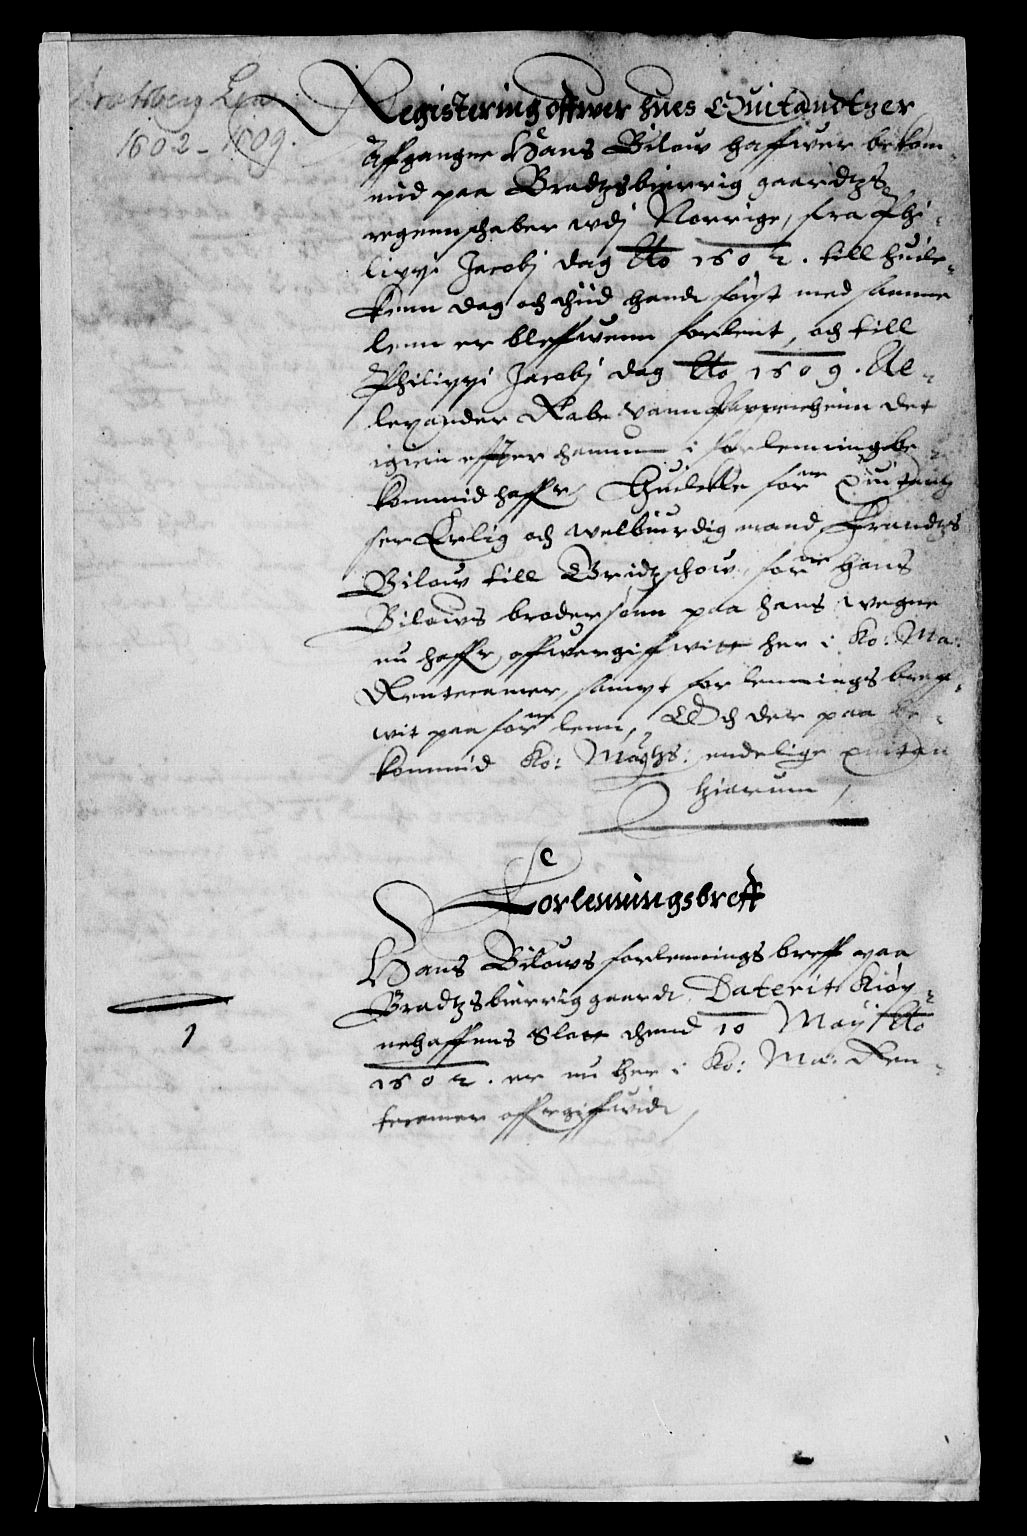 Bratsberg Len
1602 - 1609.
Registering offwer hues Quitandtzer
Affgangne Hans Bilow haffwer bekom-
mid paa Bradtzsbierrig gaardtzs
regennschaber wdj Norrige, fra Phi-
lippi Jacobj dag Ao 1602. till huile-
kenn dag och thiid hand først med samme
lenn er bleffwenn forlent, och till
Philippi Jacobj dag Ao 1609. Al-
lexander Rabe vann Pappenheim det
igien effter hannum i forlenning be-
kommid haffr, Huilcke forne Quitandz
ser Erlig och welbiurdig mand, Frandtzs
Bilow till Gridtzschow, forne Hans
Bilows brodersønn paa hans wegne
nu haffr offwergiffwitt her i Ko: Ma:
Rentecamer, sampt forlenningsbreff-
wit paa forne lenn, Och der paa be-
kommid Ko: Maytzs: endelige quitan
tziarum,
Forlenningsbreff
Hans Bilows forlennings breff paa
Bradtzsbierrig gaardt, Daterit Kiøp-
nehaffens Slott thend 10 Maij Ao
1602. er nu her i Ko: Ma: Ren-
tecamer offrgiffwidt,
1